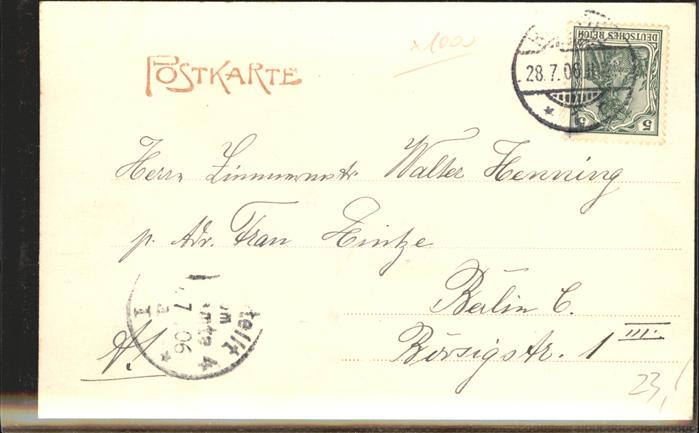 POSTKARTE
x1000
28.7.06
DEUTSCHES REICH
5 5
Herrn Zimmermstr. Walter Henning
p. Adr. Frau Hintze
Berlin C.
Börsigstr. 1 III.
7.06
23,